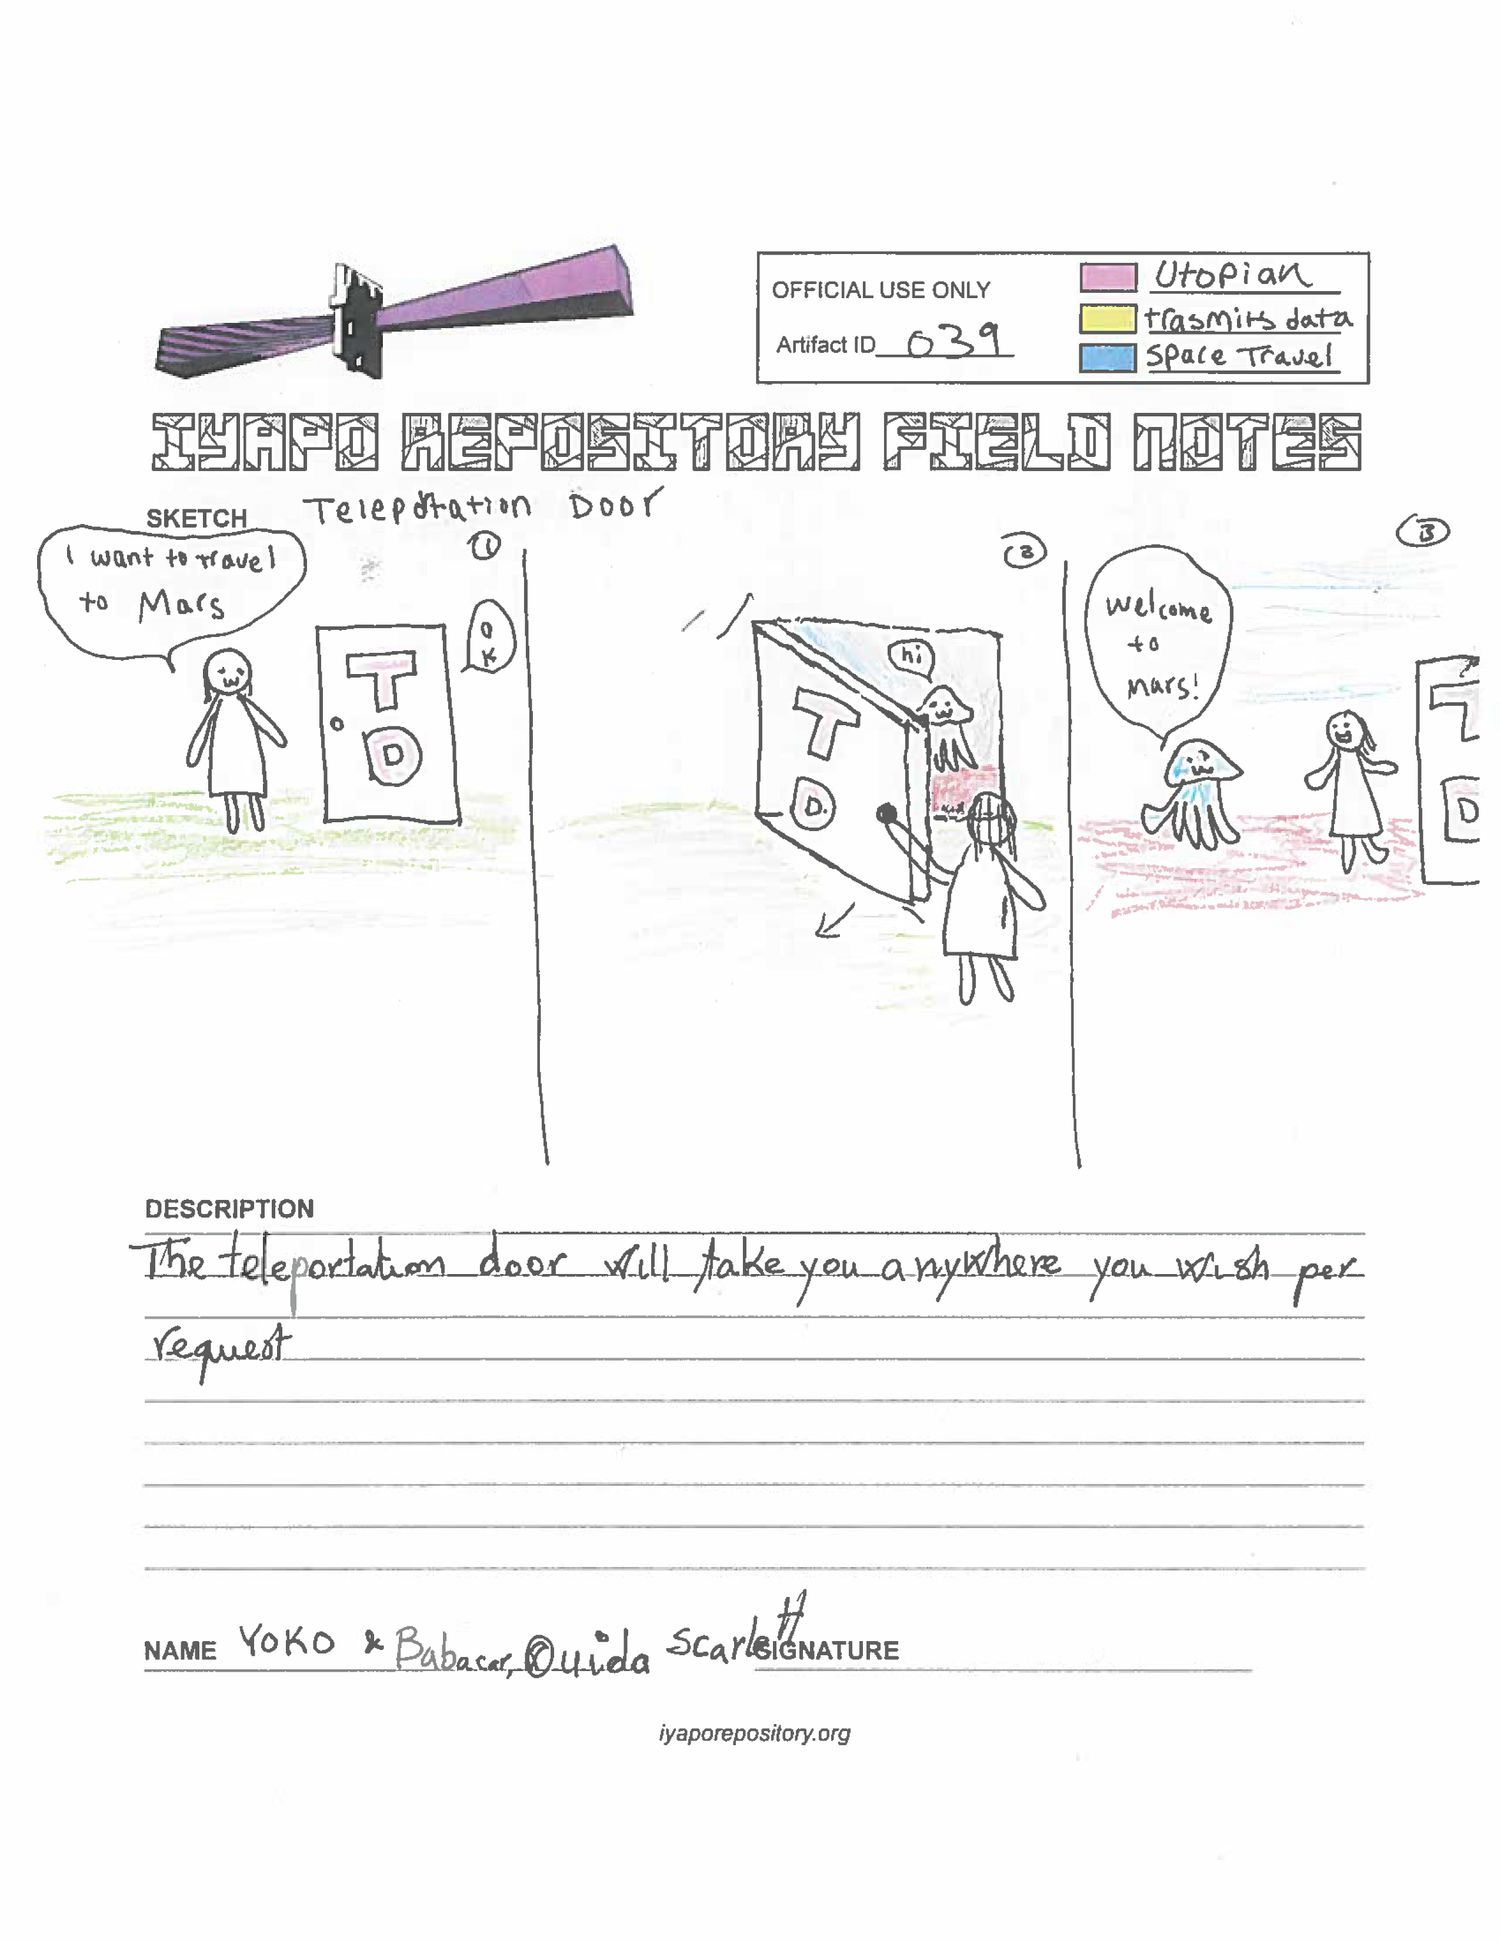 OFFICIAL USE ONLY
Artifact ID 039
Utopian
trasmits data
Space Travel
IYAPO REPOSITORY FIELD NOTES
SKETCH
Teleportation Door
1
I want to travel
to Mars
O
K
T
D
2
hi
T
D
3
Welcome
to
Mars!
T
D
DESCRIPTION
The teleportation door will take you anywhere you wish per
request
NAME YOKO & Babacar, Ouida Scarlett SIGNATURE
iyaporepository.org